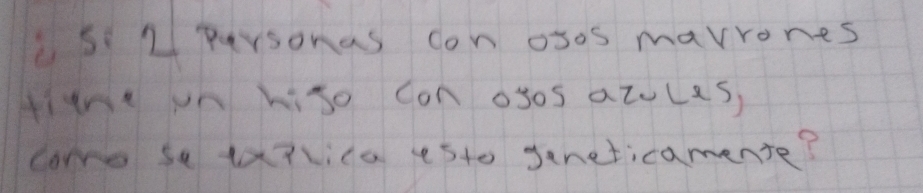 ¿ Si 2 Personas con ojos marrones
tiene un hijo con ojos azules,
como se explica esto geneticamente?